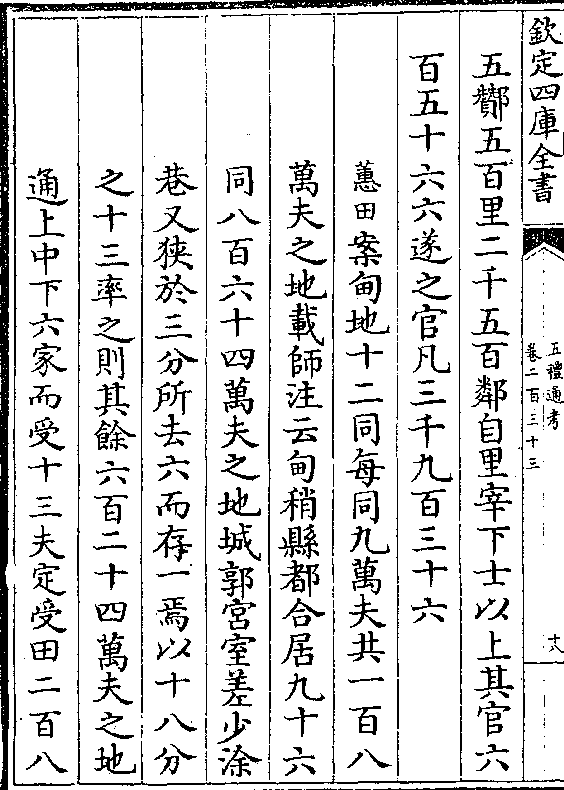 欽定四庫全書
五禮通考
卷二百三十三
十八
五酇五百里二千五百鄰自里宰下士以上其官六
百五十六六遂之官凡三千九百三十六
蕙田案甸地十二同每同九萬夫共一百八
萬夫之地載師注云甸稍縣都合居九十六
同八百六十四萬夫之地城郭宮室差少涂
巷又狹於三分所去六而存一焉以十八分
之十三率之則其餘六百二十四萬夫之地
通上中下六家而受十三夫定受田二百八